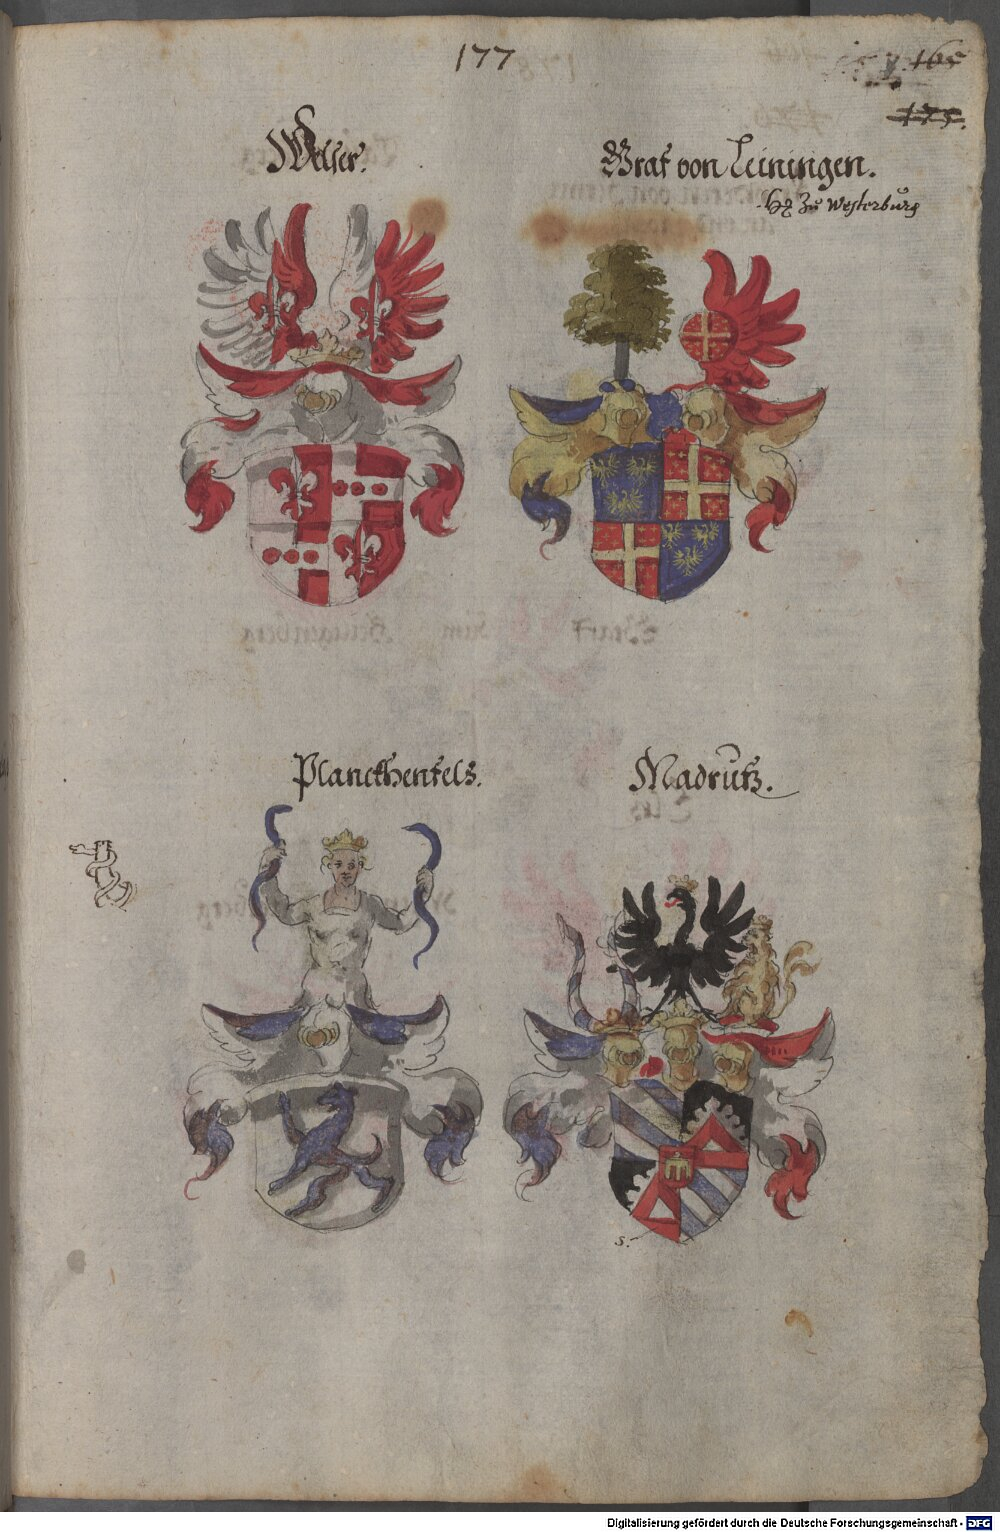 177
165
175.
Welser.
Graf von Leiningen.
Hz zu Westerburg
Planckhenfels.
Madrutz.
s.
Digitalisierung gefördert durch die Deutsche Forschungsgemeinschaft - DFG